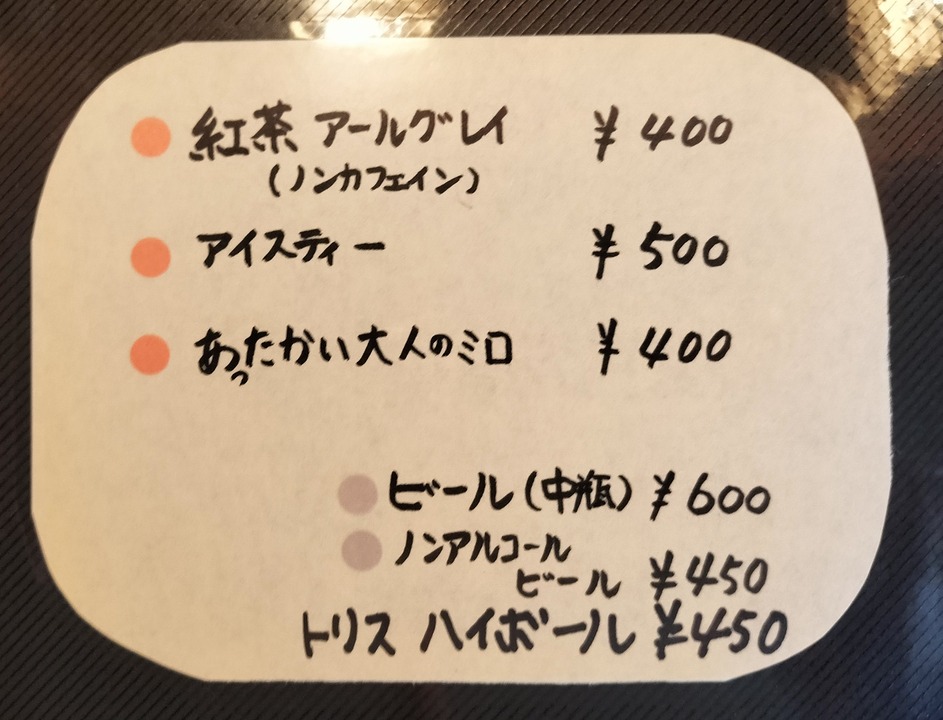 紅茶 アールグレイ ¥400
(ノンカフェイン)
アイスティー ¥500
あったかい大人のミロ ¥400
ビール(中瓶) ¥600
ノンアルコール
ビール ¥450
トリス ハイボール ¥450